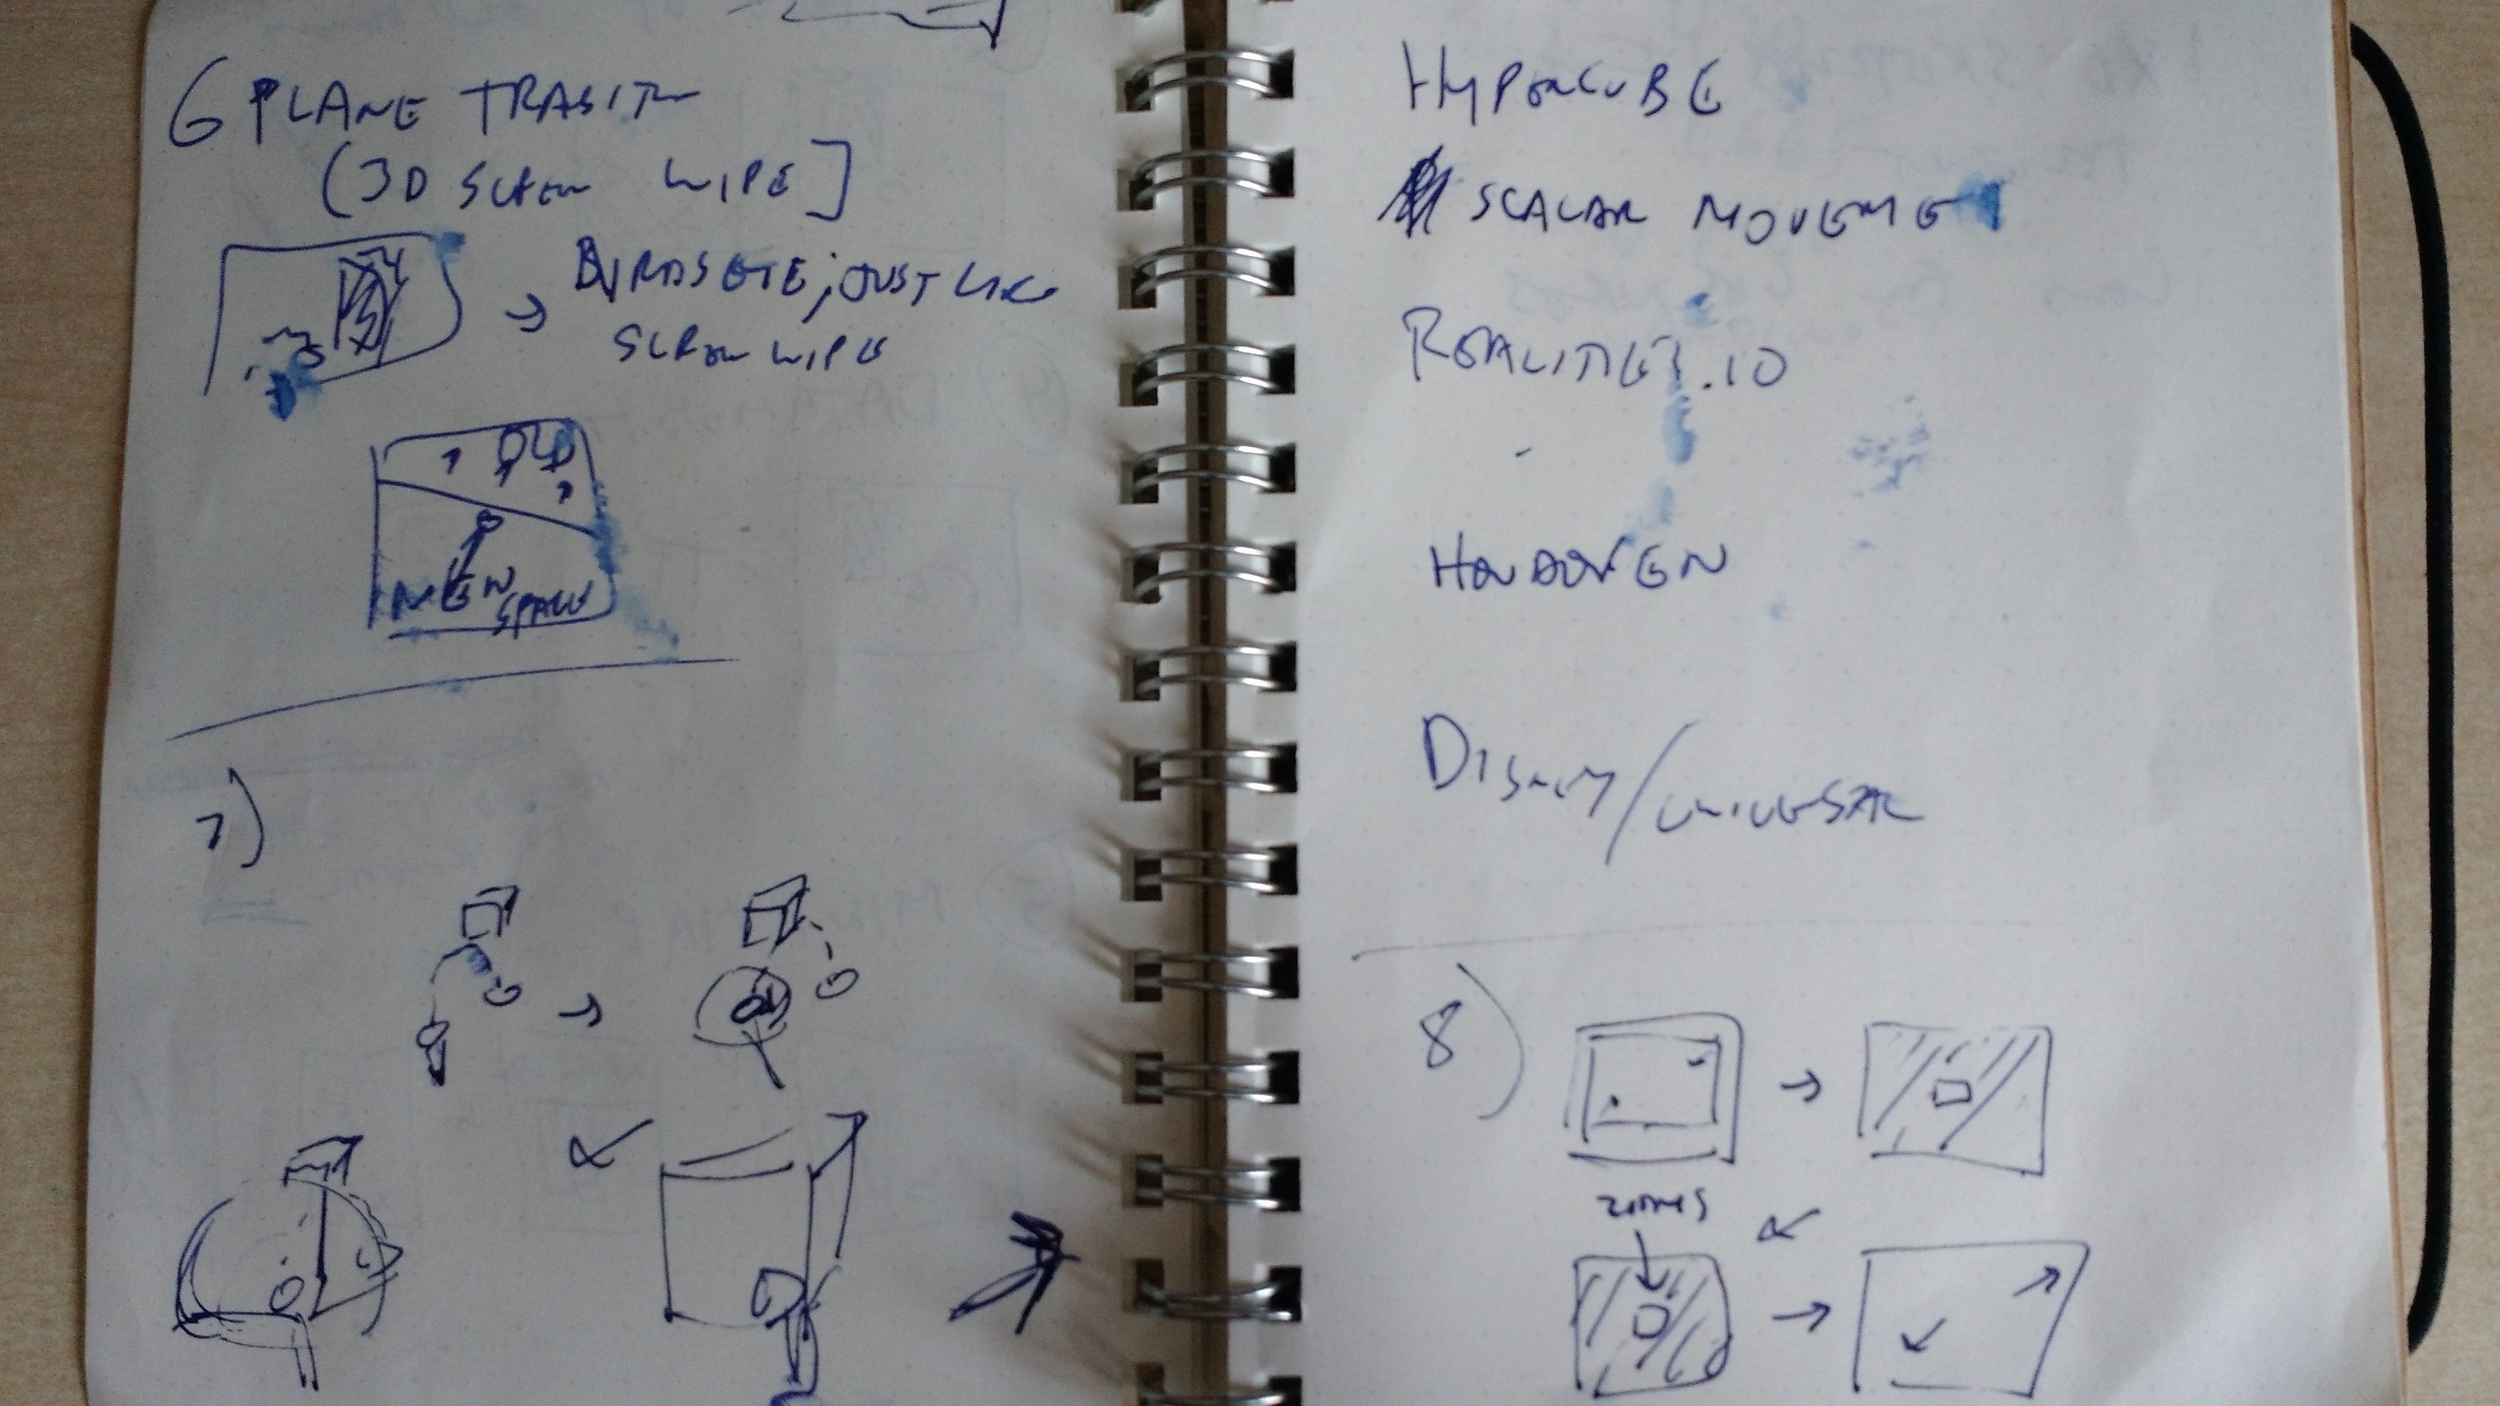 6 PLANE TRASITN
(3D SCREEN WIPE]
BYRDSEYE; JUST LIKE
SCREEN WIPE
OLD
NEW
SPACE
7)
HYPERCUBE
SCALAR MOVEME
REALITIES.IO
DISNEY/UNIVERSAL
8)
ZOOMS